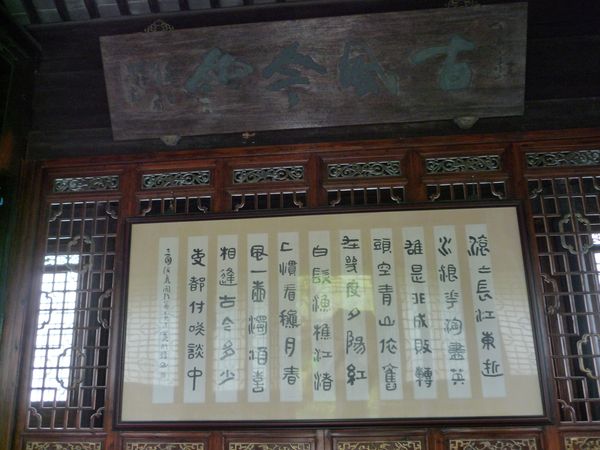 古風今
滾〻長江東逝
水浪花淘盡英
雄是非成敗轉
頭空青山依舊
在幾度夕陽紅
白髮漁樵江渚
上慣看穐月春
風一壺濁酒喜
相逢古今多少
事都付咲談中
三國演義開